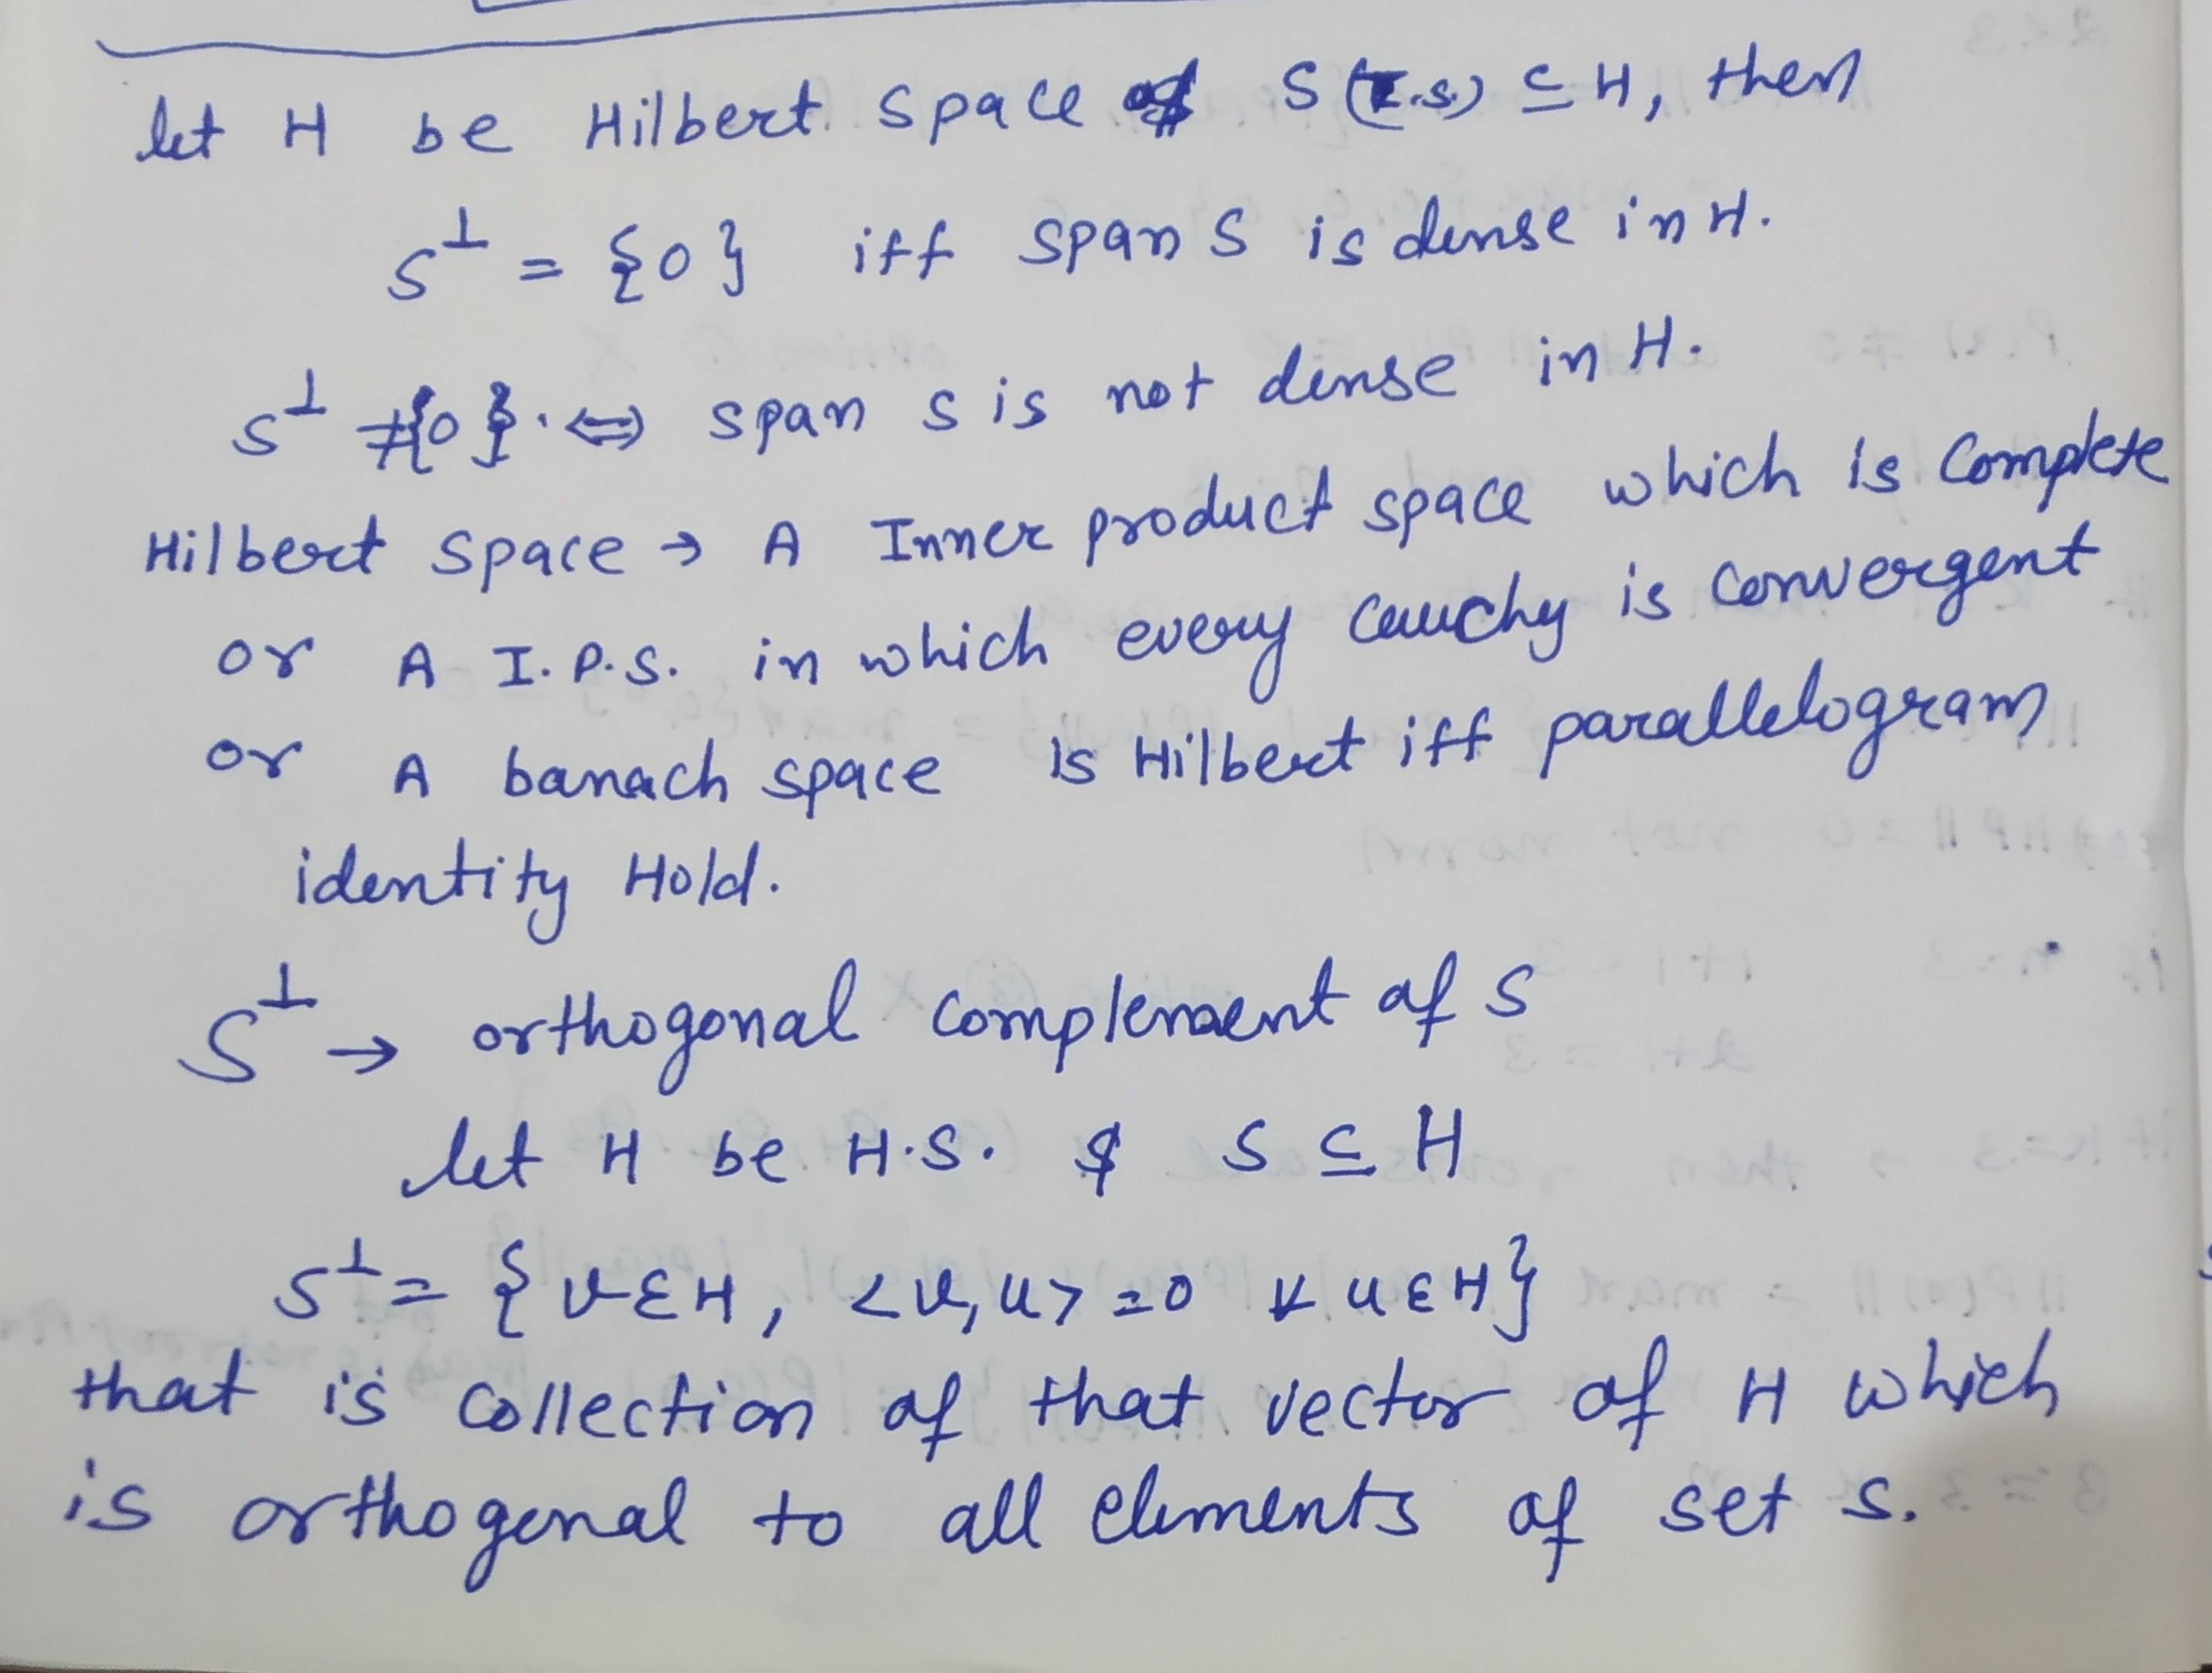 let H be Hilbert space & S (I.s.) ⊆ H, then
S⊥ = {0} iff span S is dense in H.
S⊥ ≠ {0}. ⇔ span S is not dense in H.
Hilbert space → A Inner product space which is Complete
or A I.P.S. in which every cauchy is Convergent
or A banach space is Hilbert iff parallelogram
identity Hold.
S⊥ → orthogonal complement of S
let H be H.S. & S ⊆ H
S⊥ = {v ∈ H, <v,u> = 0 ∀ u ∈ H}
that is collection of that vector of H which
is orthogonal to all elements of set S.